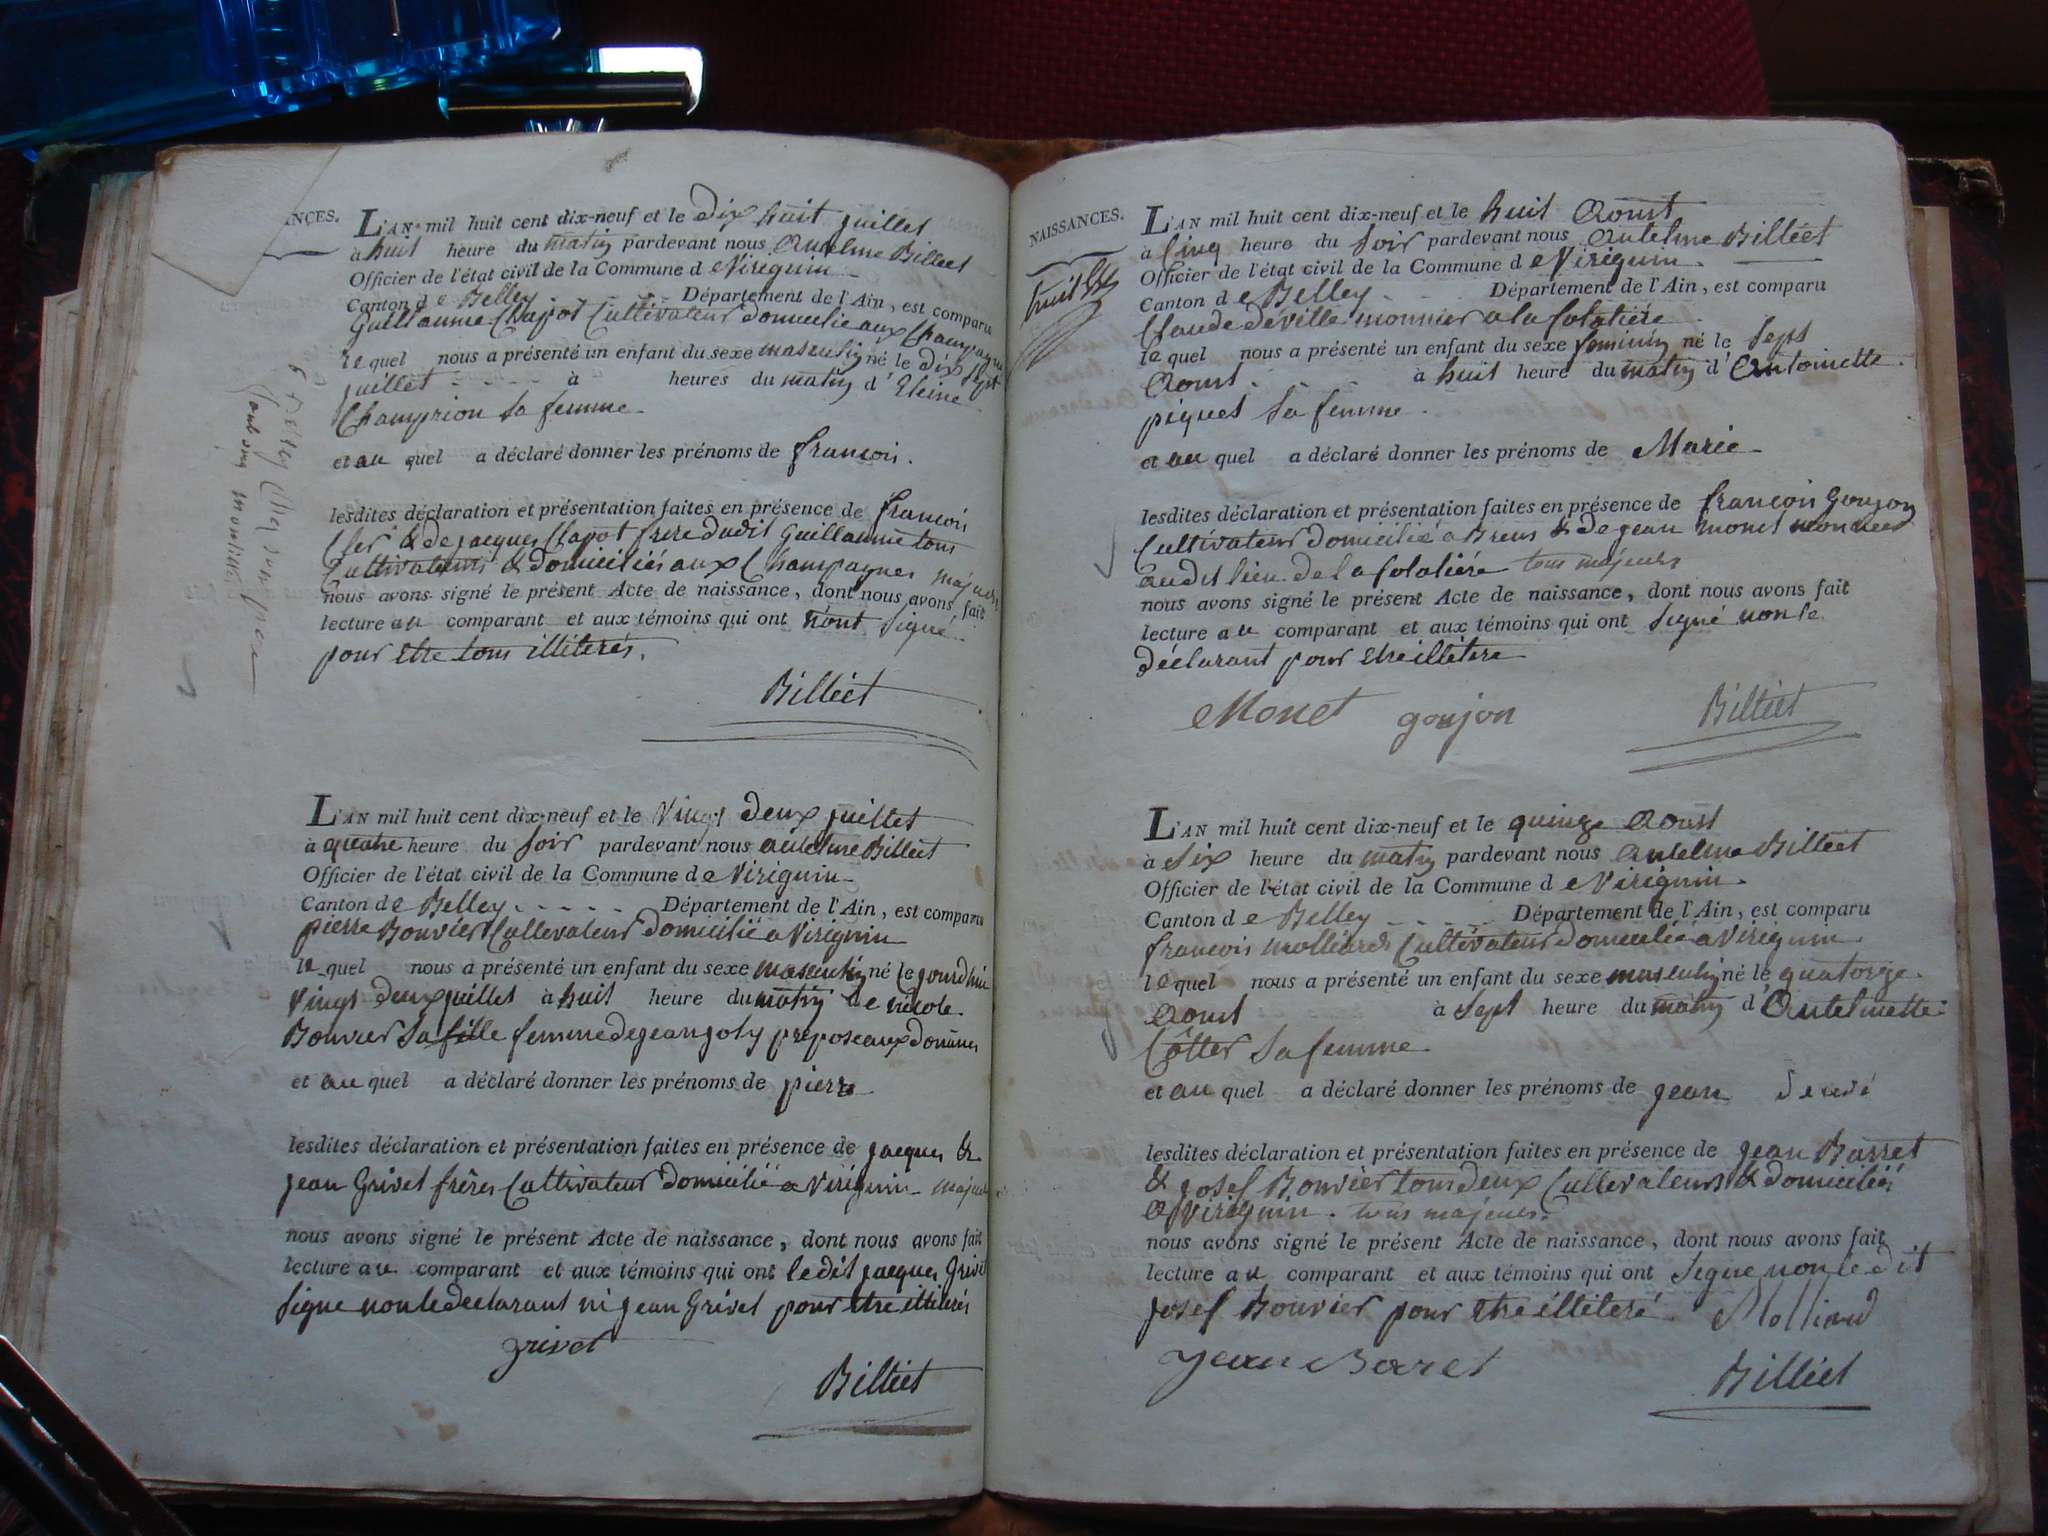 NANCES.
L'AN mil huit cent dix-neuf et le dix huit juillet
à huit heure du matin pardevant nous Antelme Billiet
Officier de l'état civil de la Commune de Virignin
Canton de Belley Département de l'Ain, est comparu
Guillaume Chapot Cultivateur domicilié aux Champagnes
lequel nous a présenté un enfant du sexe masculin né le dix sept
juillet à heures du matin d'
Champrion sa femme
et au quel a déclaré donner les prénoms de françois.
lesdites déclaration et présentation faites en présence de françois
& de jacques Chapot frere dudit Guillaume tous
Cultivateurs & domiciliés aux Champagnes majeurs
nous avons signé le présent Acte de naissance, dont nous avons fait
lecture au comparant et aux témoins qui ont n'ont signé
pour etre tous illiterés.
Billiet
L'AN mil huit cent dix-neuf et le vingt deux juillet
à quatre heure du soir pardevant nous antelme Billiet
Officier de l'état civil de la Commune de Virignin
Canton de Belley Département de l'Ain, est comparu
pierre Bouvier Cultivateur domicilié a Virignin
le quel nous a présenté un enfant du sexe masculin né le jourdhui
vingt deux juillet à huit heure du matin de nicole
Bouvier sa fille femme de jean joly preposé aux douanes
et au quel a déclaré donner les prénoms de pierre
lesdites déclaration et présentation faites en présence de jacques &
jean Grivet frères Cultivateur domicilié a Virignin majeurs
nous avons signé le présent Acte de naissance, dont nous avons fait
lecture au comparant et aux témoins qui ont ledit jacques Grivet
signe non le declarant ni jean Grivet pour etre illiterés
grivet
Billiet
NAISSANCES.
L'AN mil huit cent dix-neuf et le huit Aoust
à Cinq heure du soir pardevant nous Antelme Billiet
Officier de l'état civil de la Commune de Virignin
Canton de Belley Département de l'Ain, est comparu
Claude déville monnier a la
lequel nous a présenté un enfant du sexe feminin né le sept
Aoust à huit heure du matin d'Antoinette
piquet sa femme
et au quel a déclaré donner les prénoms de Marie
lesdites déclaration et présentation faites en présence de françois Goujon
Cultivateur domicilié a Brens & de jean monet
audit lieu de la tous majeurs
nous avons signé le présent Acte de naissance, dont nous avons fait
lecture au comparant et aux témoins qui ont signé non le
déclarant pour etre illitere
Monet goujon Billiet
L'AN mil huit cent dix-neuf et le quinze Aoust
à six heure du matin pardevant nous Antelme Billiet
Officier de l'état civil de la Commune de Virignin
Canton de Belley Département de l'Ain, est comparu
françois molliard Cultivateur domicilié a Virignin
lequel nous a présenté un enfant du sexe masculin né le quatorze
Aoust à sept heure du matin d'Antelmette
Cotter sa femme
et au quel a déclaré donner les prénoms de jean
lesdites déclaration et présentation faites en présence de jean Barret
& josef Bouvier tous deux Cultivateurs & domiciliés
a Virignin. tous majeurs.
nous avons signé le présent Acte de naissance, dont nous avons fait
lecture au comparant et aux témoins qui ont signe non le dit
josef Bouvier pour etre illiteré Molliard
jean Baret
Billiet